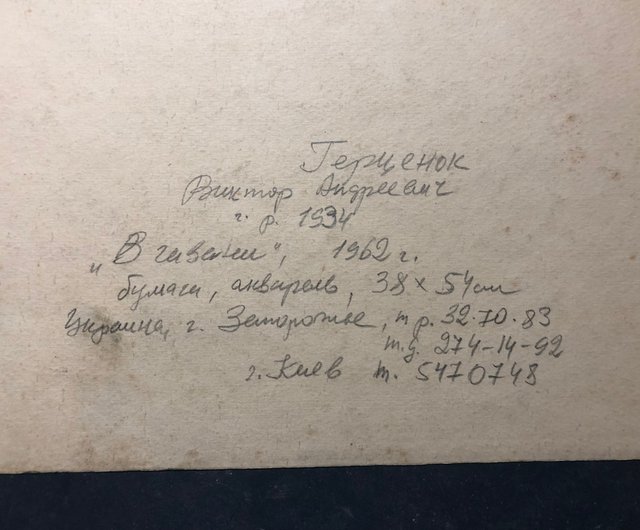 Герценок
Виктор Андреевич
г. р. 1934
„В гавани", 1962 г.
бумага, акварель, 38 × 54 см
Украина, г. Запорожье, т р. 32-70-83
т.д. 274-14-92
г. Киев т. 5470748